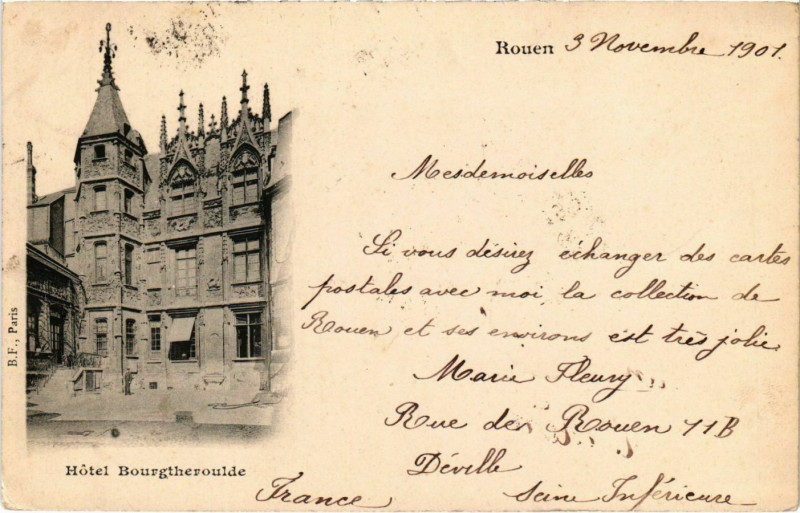 Rouen 3 Novembre 1901.
Mesdemoiselles
Si vous désirez échanger des cartes
postales avec moi la collection de
Rouen et ses environs est très jolie.
Marie Fleury
Rue de Rouen 11B
Déville
France Seine Inférieure
B.F., Paris
Hôtel Bourgtheroulde